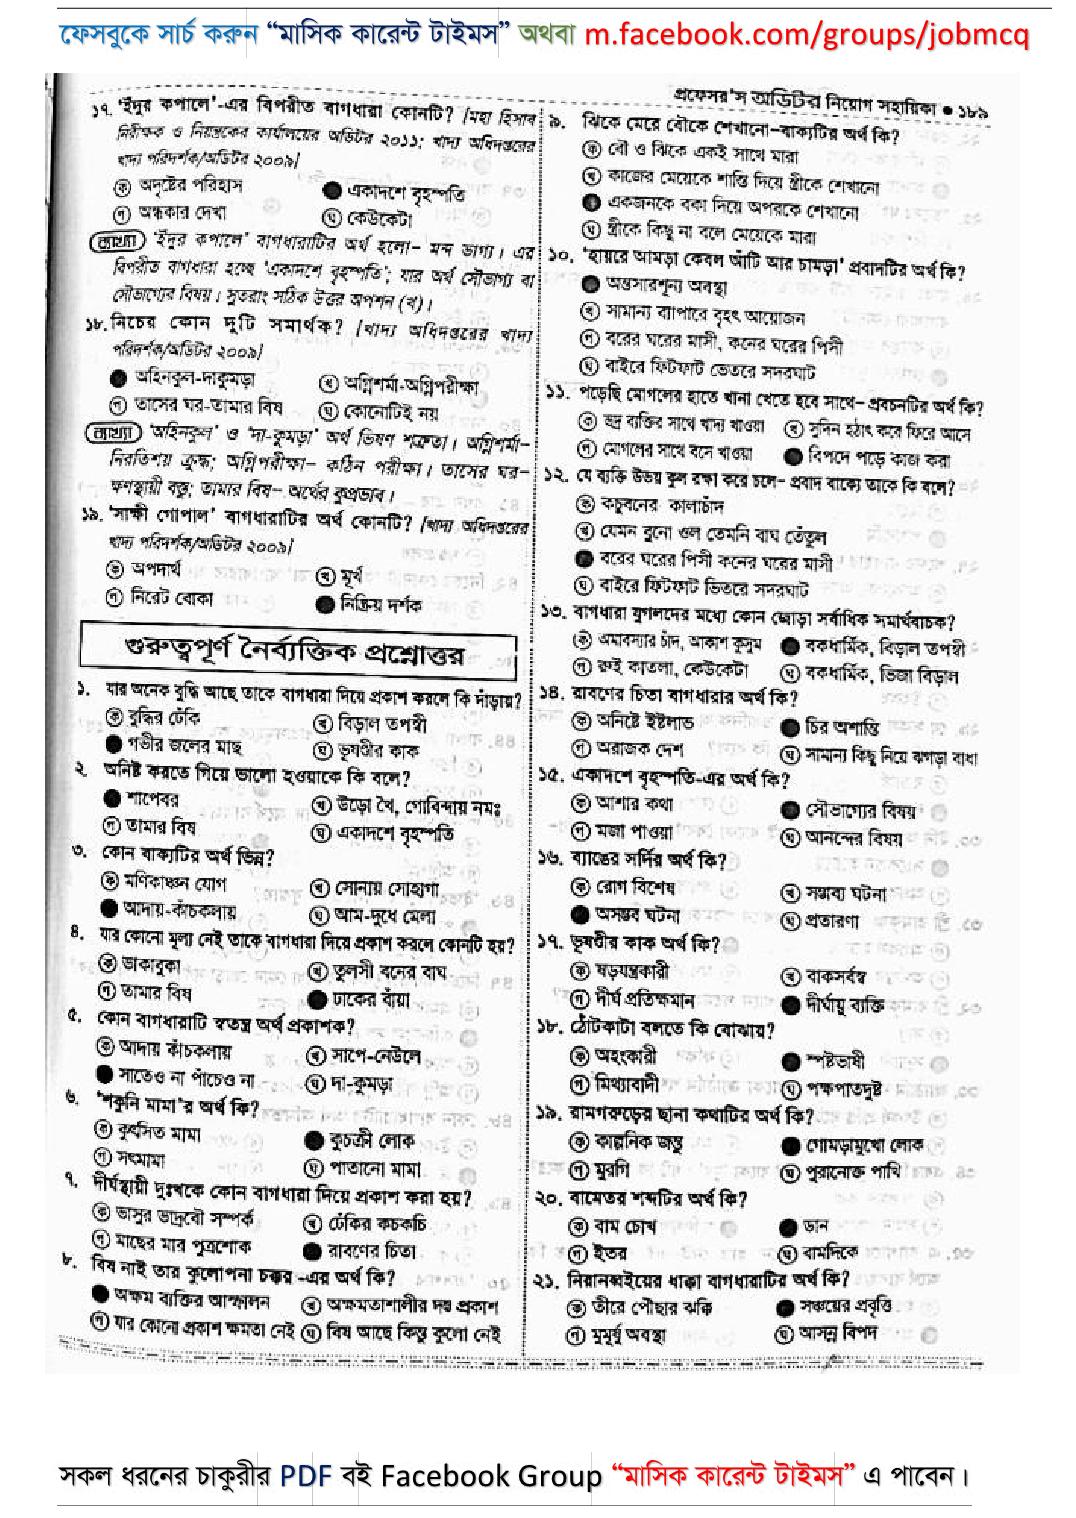 ফেসবুকে সার্চ করুন “মাসিক কারেন্ট টাইমস” অথবা m.facebook.com/groups/jobmcq
প্রফেসর'স অডিটর নিয়োগ সহায়িকা ● ১৮৯
১৭. ‘ইঁদুর কপালে’-এর বিপরীত বাগধারা কোনটি? [মহা হিসাব
নিরীক্ষক ও নিয়ন্ত্রকের কার্যালয়ের অডিটর ২০১১; খাদ্য অধিদপ্তরের
খাদ্য পরিদর্শক/অডিটর ২০০৯]
ক অদৃষ্টের পরিহাস ● একাদশে বৃহস্পতি
গ অন্ধকার দেখা ঘ কেউকেটা
ব্যাখ্যা ‘ইঁদুর কপালে’ বাগধারাটির অর্থ হলো– মন্দ ভাগ্য। এর
বিপরীত বাগধারা হচ্ছে ‘একাদশে বৃহস্পতি’; যার অর্থ সৌভাগ্য বা
সৌভাগ্যের বিষয়। সুতরাং সঠিক উত্তর অপশন (খ)।
১৮. নিচের কোন দুটি সমার্থক? [খাদ্য অধিদপ্তরের খাদ্য
পরিদর্শক/অডিটর ২০০৯]
● অহিনকুল-দাকুমড়া খ অগ্নিশর্মা-অগ্নিপরীক্ষা
গ তাসের ঘর-তামার বিষ ঘ কোনোটিই নয়
ব্যাখ্যা ‘অহিনকুল’ ও ‘দা-কুমড়া’ অর্থ ভিষণ শত্রুতা। অগ্নিশর্মা–
নিরতিশয় ক্রুদ্ধ; অগ্নিপরীক্ষা– কঠিন পরীক্ষা। তাসের ঘর–
ক্ষণস্থায়ী বস্তু; তামার বিষ– অর্থের কুপ্রভাব।
১৯. ‘সাক্ষী গোপাল’ বাগধারাটির অর্থ কোনটি? [খাদ্য অধিদপ্তরের
খাদ্য পরিদর্শক/অডিটর ২০০৯]
ক অপদার্থ খ মূর্খ
গ নিরেট বোকা ● নিষ্ক্রিয় দর্শক
গুরুত্বপূর্ণ নৈর্ব্যক্তিক প্রশ্নোত্তর
১. যার অনেক বুদ্ধি আছে তাকে বাগধারা দিয়ে প্রকাশ করলে কি দাঁড়ায়?
ক বুদ্ধির ঢেঁকি খ বিড়াল তপস্বী
● গভীর জলের মাছ ঘ ভূষণ্ডীর কাক
২. অনিষ্ট করতে গিয়ে ভালো হওয়াকে কি বলে?
● শাপেবর খ উড়ো খৈ, গোবিন্দায় নমঃ
গ তামার বিষ ঘ একাদশে বৃহস্পতি
৩. কোন বাক্যটির অর্থ ভিন্ন?
ক মণিকাঞ্চন যোগ খ সোনায় সোহাগা
● আদায়-কাঁচকলায় ঘ আম-দুধে মেলা
৪. যার কোনো মূল্য নেই তাকে বাগধারা দিয়ে প্রকাশ করলে কোনটি হয়?
ক ডাকাবুকা খ তুলসী বনের বাঘ
গ তামার বিষ ● ঢাকের বাঁয়া
৫. কোন বাগধারাটি স্বতন্ত্র অর্থ প্রকাশক?
ক আদায় কাঁচকলায় খ সাপে-নেউলে
● সাতেও না পাঁচেও না ঘ দা-কুমড়া
৬. ‘শকুনি মামা’র অর্থ কি?
ক কুৎসিত মামা ● কুচক্রী লোক
গ সৎমামা ঘ পাতানো মামা
৭. দীর্ঘস্থায়ী দুঃখকে কোন বাগধারা দিয়ে প্রকাশ করা হয়?
ক ভাসুর ভাদ্রবৌ সম্পর্ক খ ঢেঁকির কচকচি
গ মাছের মার পুত্রশোক ● রাবণের চিতা
৮. বিষ নাই তার কুলোপনা চক্কর -এর অর্থ কি?
● অক্ষম ব্যক্তির আস্ফালন খ অক্ষমতাশালীর দম্ভ প্রকাশ
গ যার কোনো প্রকাশ ক্ষমতা নেই ঘ বিষ আছে কিন্তু কুলো নেই
৯. ঝিকে মেরে বৌকে শেখানো–বাক্যটির অর্থ কি?
ক বৌ ও ঝিকে একই সাথে মারা
খ কাজের মেয়েকে শাস্তি দিয়ে স্ত্রীকে শেখানো
● একজনকে বকা দিয়ে অপরকে শেখানো
ঘ স্ত্রীকে কিছু না বলে মেয়েকে মারা
১০. ‘হায়রে আমড়া কেবল আঁটি আর চামড়া’ প্রবাদটির অর্থ কি?
● অন্তসারশূন্য অবস্থা
খ সামান্য ব্যাপারে বৃহৎ আয়োজন
গ বরের ঘরের মাসী, কনের ঘরের পিসী
ঘ বাইরে ফিটফাট ভেতরে সদরঘাট
১১. পড়েছি মোগলের হাতে খানা খেতে হবে সাথে– প্রবচনটির অর্থ কি?
ক ভদ্র ব্যক্তির সাথে খাদ্য খাওয়া খ সুদিন হঠাৎ করে ফিরে আসে
গ মোগলের সাথে বসে খাওয়া ● বিপদে পড়ে কাজ করা
১২. যে ব্যক্তি উভয় কুল রক্ষা করে চলে– প্রবাদ বাক্যে তাকে কি বলে?
ক কচুবনের কালাচাঁদ
খ যেমন বুনো ওল তেমনি বাঘ তেঁতুল
● বরের ঘরের পিসী কনের ঘরের মাসী
ঘ বাইরে ফিটফাট ভিতরে সদরঘাট
১৩. বাগধারা যুগলদের মধ্যে কোন জোড়া সর্বাধিক সমার্থবাচক?
ক অমাবস্যার চাঁদ, আকাশ কুসুম ● বকধার্মিক, বিড়াল তপস্বী
গ রুই কাতলা, কেউকেটা ঘ বকধার্মিক, ভিজা বিড়াল
১৪. রাবণের চিতা বাগধারার অর্থ কি?
ক অনিষ্টে ইষ্টলাভ ● চির অশান্তি
গ অরাজক দেশ ঘ সামান্য কিছু নিয়ে ঝগড়া বাধা
১৫. একাদশে বৃহস্পতি-এর অর্থ কি?
ক আশার কথা ● সৌভাগ্যের বিষয়
গ মজা পাওয়া ঘ আনন্দের বিষয়
১৬. ব্যাঙের সর্দির অর্থ কি?
ক রোগ বিশেষ খ সম্ভব্য ঘটনা
● অসম্ভব ঘটনা ঘ প্রতারণা
১৭. ভূষণ্ডীর কাক অর্থ কি?
ক ষড়যন্ত্রকারী খ বাকসর্বস্ব
গ দীর্ঘ প্রতিক্ষমান ● দীর্ঘায়ু ব্যক্তি
১৮. ঠোঁটকাটা বলতে কি বোঝায়?
ক অহংকারী ● স্পষ্টভাষী
গ মিথ্যাবাদী ঘ পক্ষপাতদুষ্ট
১৯. রামগরুড়ের ছানা কথাটির অর্থ কি?
ক কাল্পনিক জন্তু ● গোমড়ামুখো লোক
গ মুরগি ঘ পুরানোক্ত পাখি
২০. বামেতর শব্দটির অর্থ কি?
ক বাম চোখ ● ডান
গ ইতর ঘ বামদিকে
২১. নিরানব্বইয়ের ধাক্কা বাগধারাটির অর্থ কি?
ক তীরে পৌঁছার ঝক্কি ● সঞ্চয়ের প্রবৃত্তি
গ মুমূর্ষু অবস্থা ঘ আসন্ন বিপদ
সকল ধরনের চাকুরীর PDF বই Facebook Group “মাসিক কারেন্ট টাইমস” এ পাবেন।